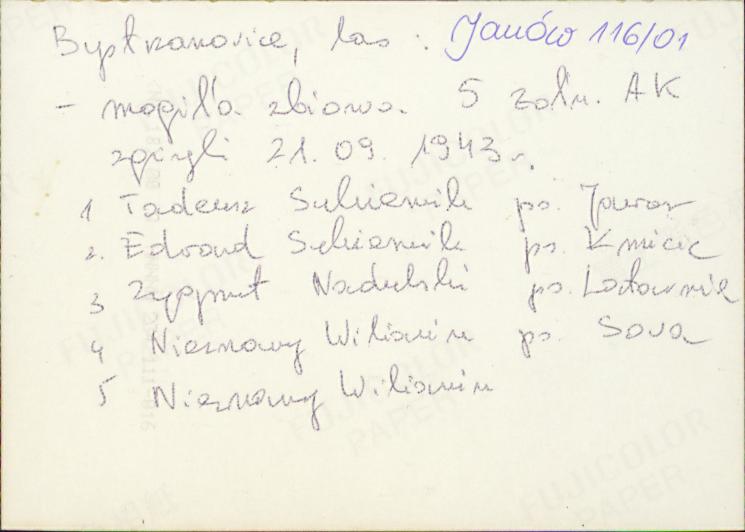 Bystrzanowice, las : Janów 116/01
- mogiła zbiorowa 5 żołn. AK
zginęli 21.09. 1943 r.
1 Tadeusz Sukiennik ps. Jawor
2. Edward Sukiennik ps. Kmicic
3 Zygmunt Nadulski ps. Latawiec
4 Nieznany Wilianin ps. Sowa
5 Nieznany Wilianin
FUJICOLOR
PAPER